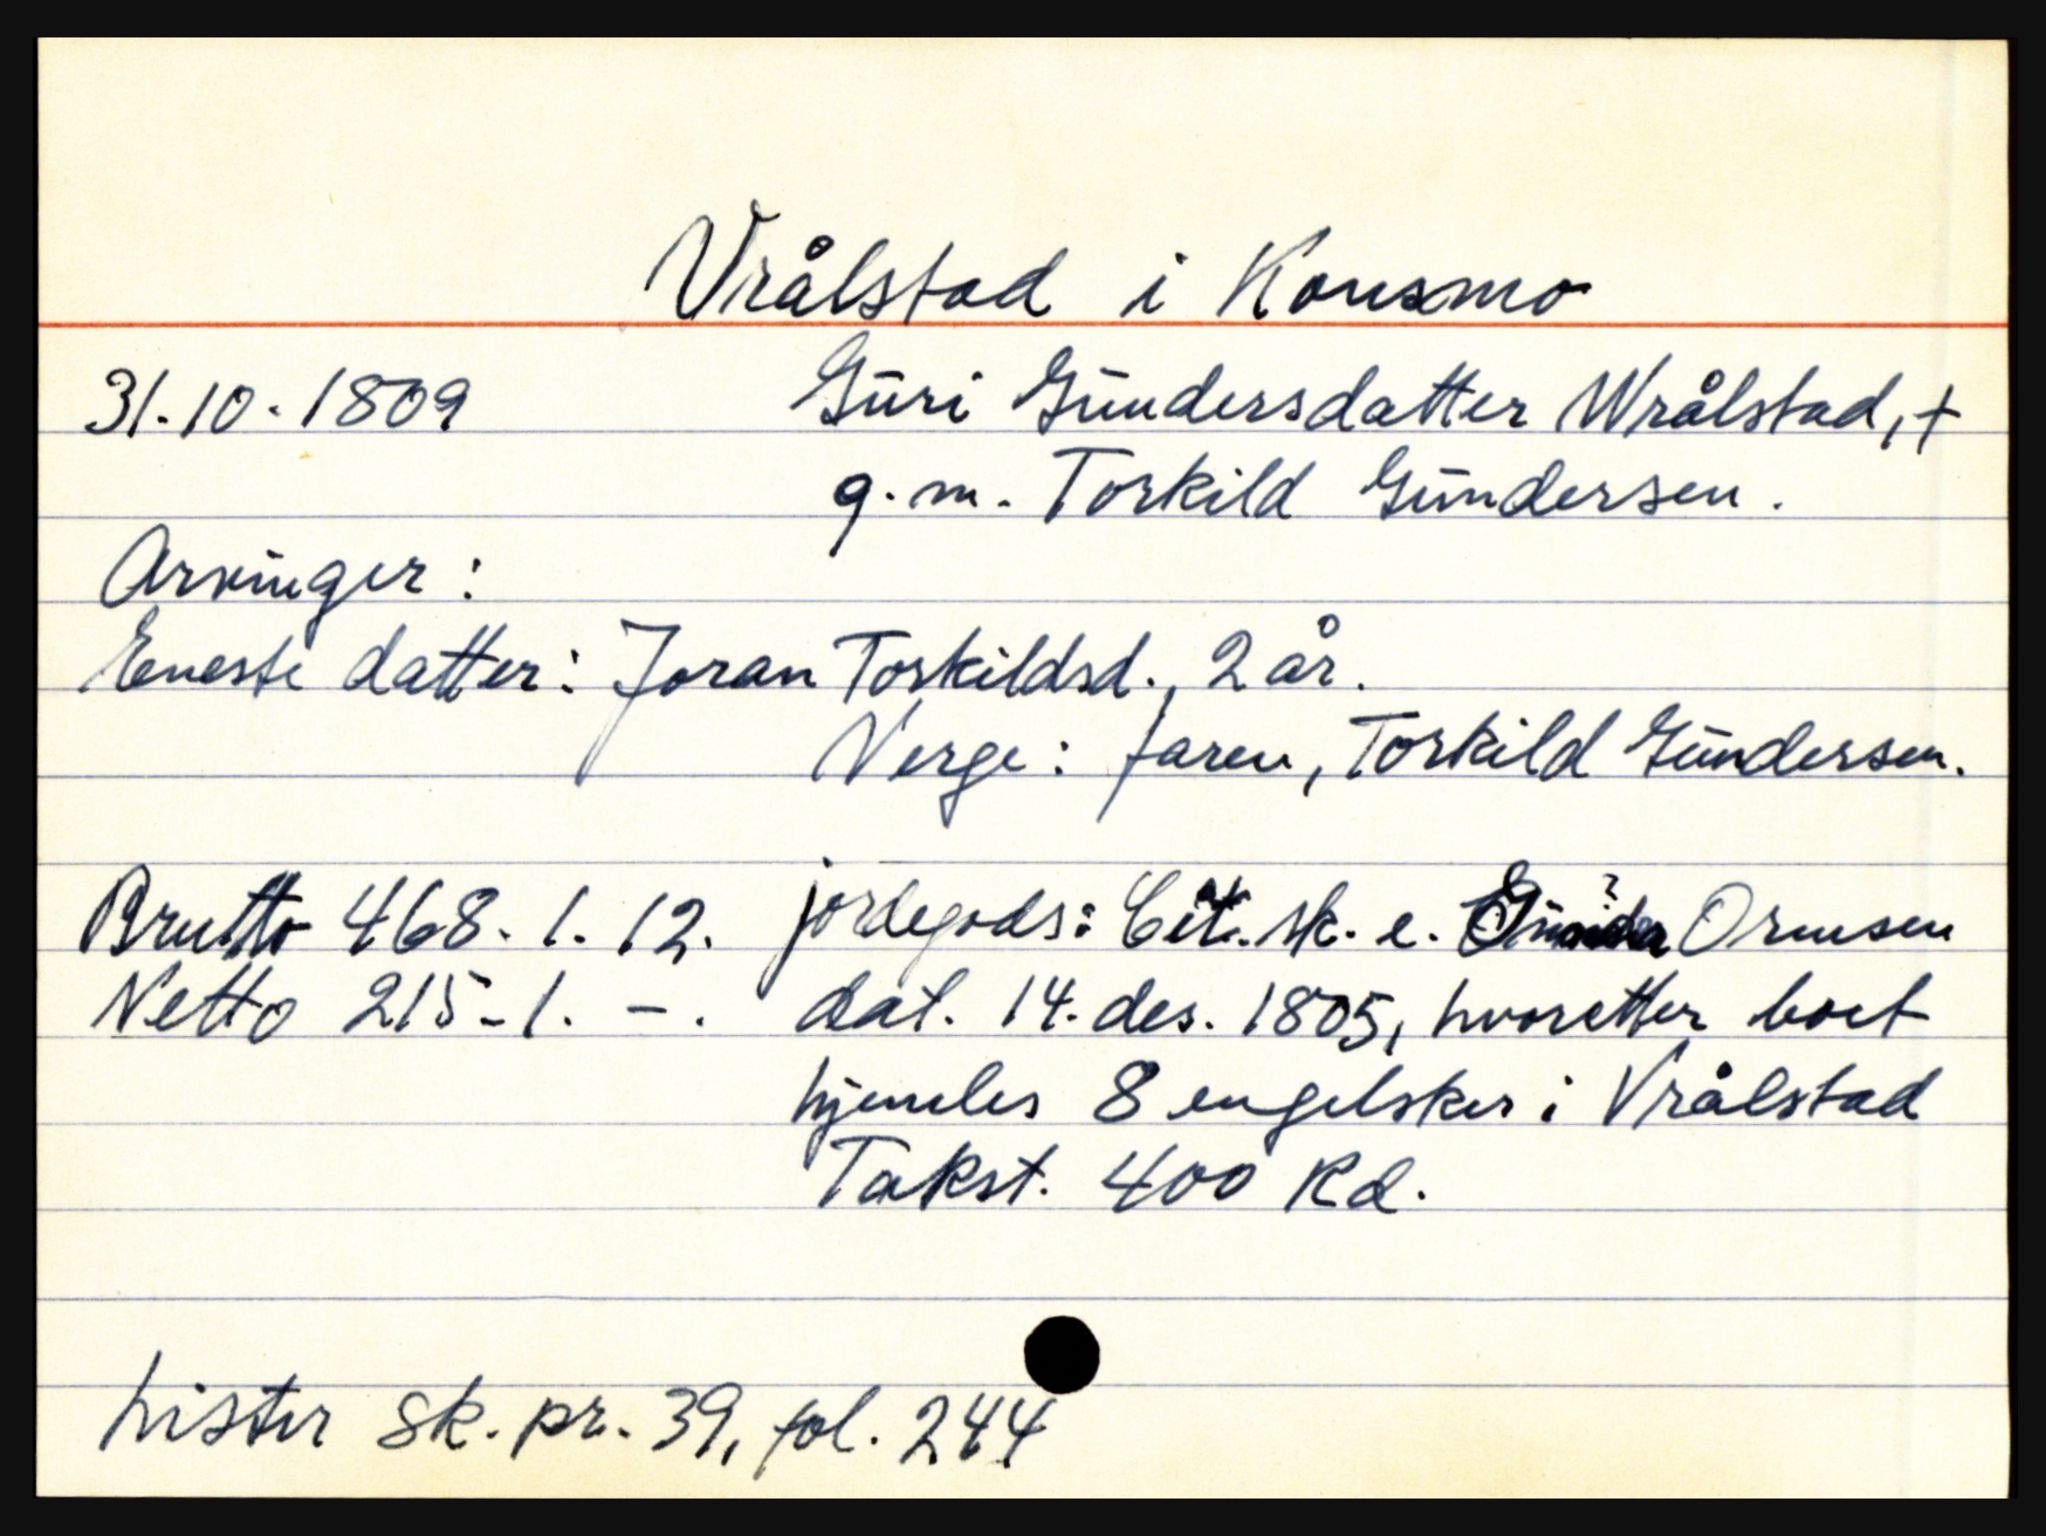 Vrålstad i Konsmo
31.10.1809 Guri Gundersdatter Wrålstad, +
g.m. Torkild Gundersen.
Arvinger:
Eneste datter: Joran Torkildsd., 2 år.
Verge: faren, Torkild Gundersen.
Brutto 468. 1. 12. jordegods: sk. e. Ormsen
Netto 215-1. -. dat. 14. des. 1805, hvoretter boet
hjemles 8 engelsker i Vrålstad
Takst. 400 Rd.
Lister sk. pr. 39, fol. 244